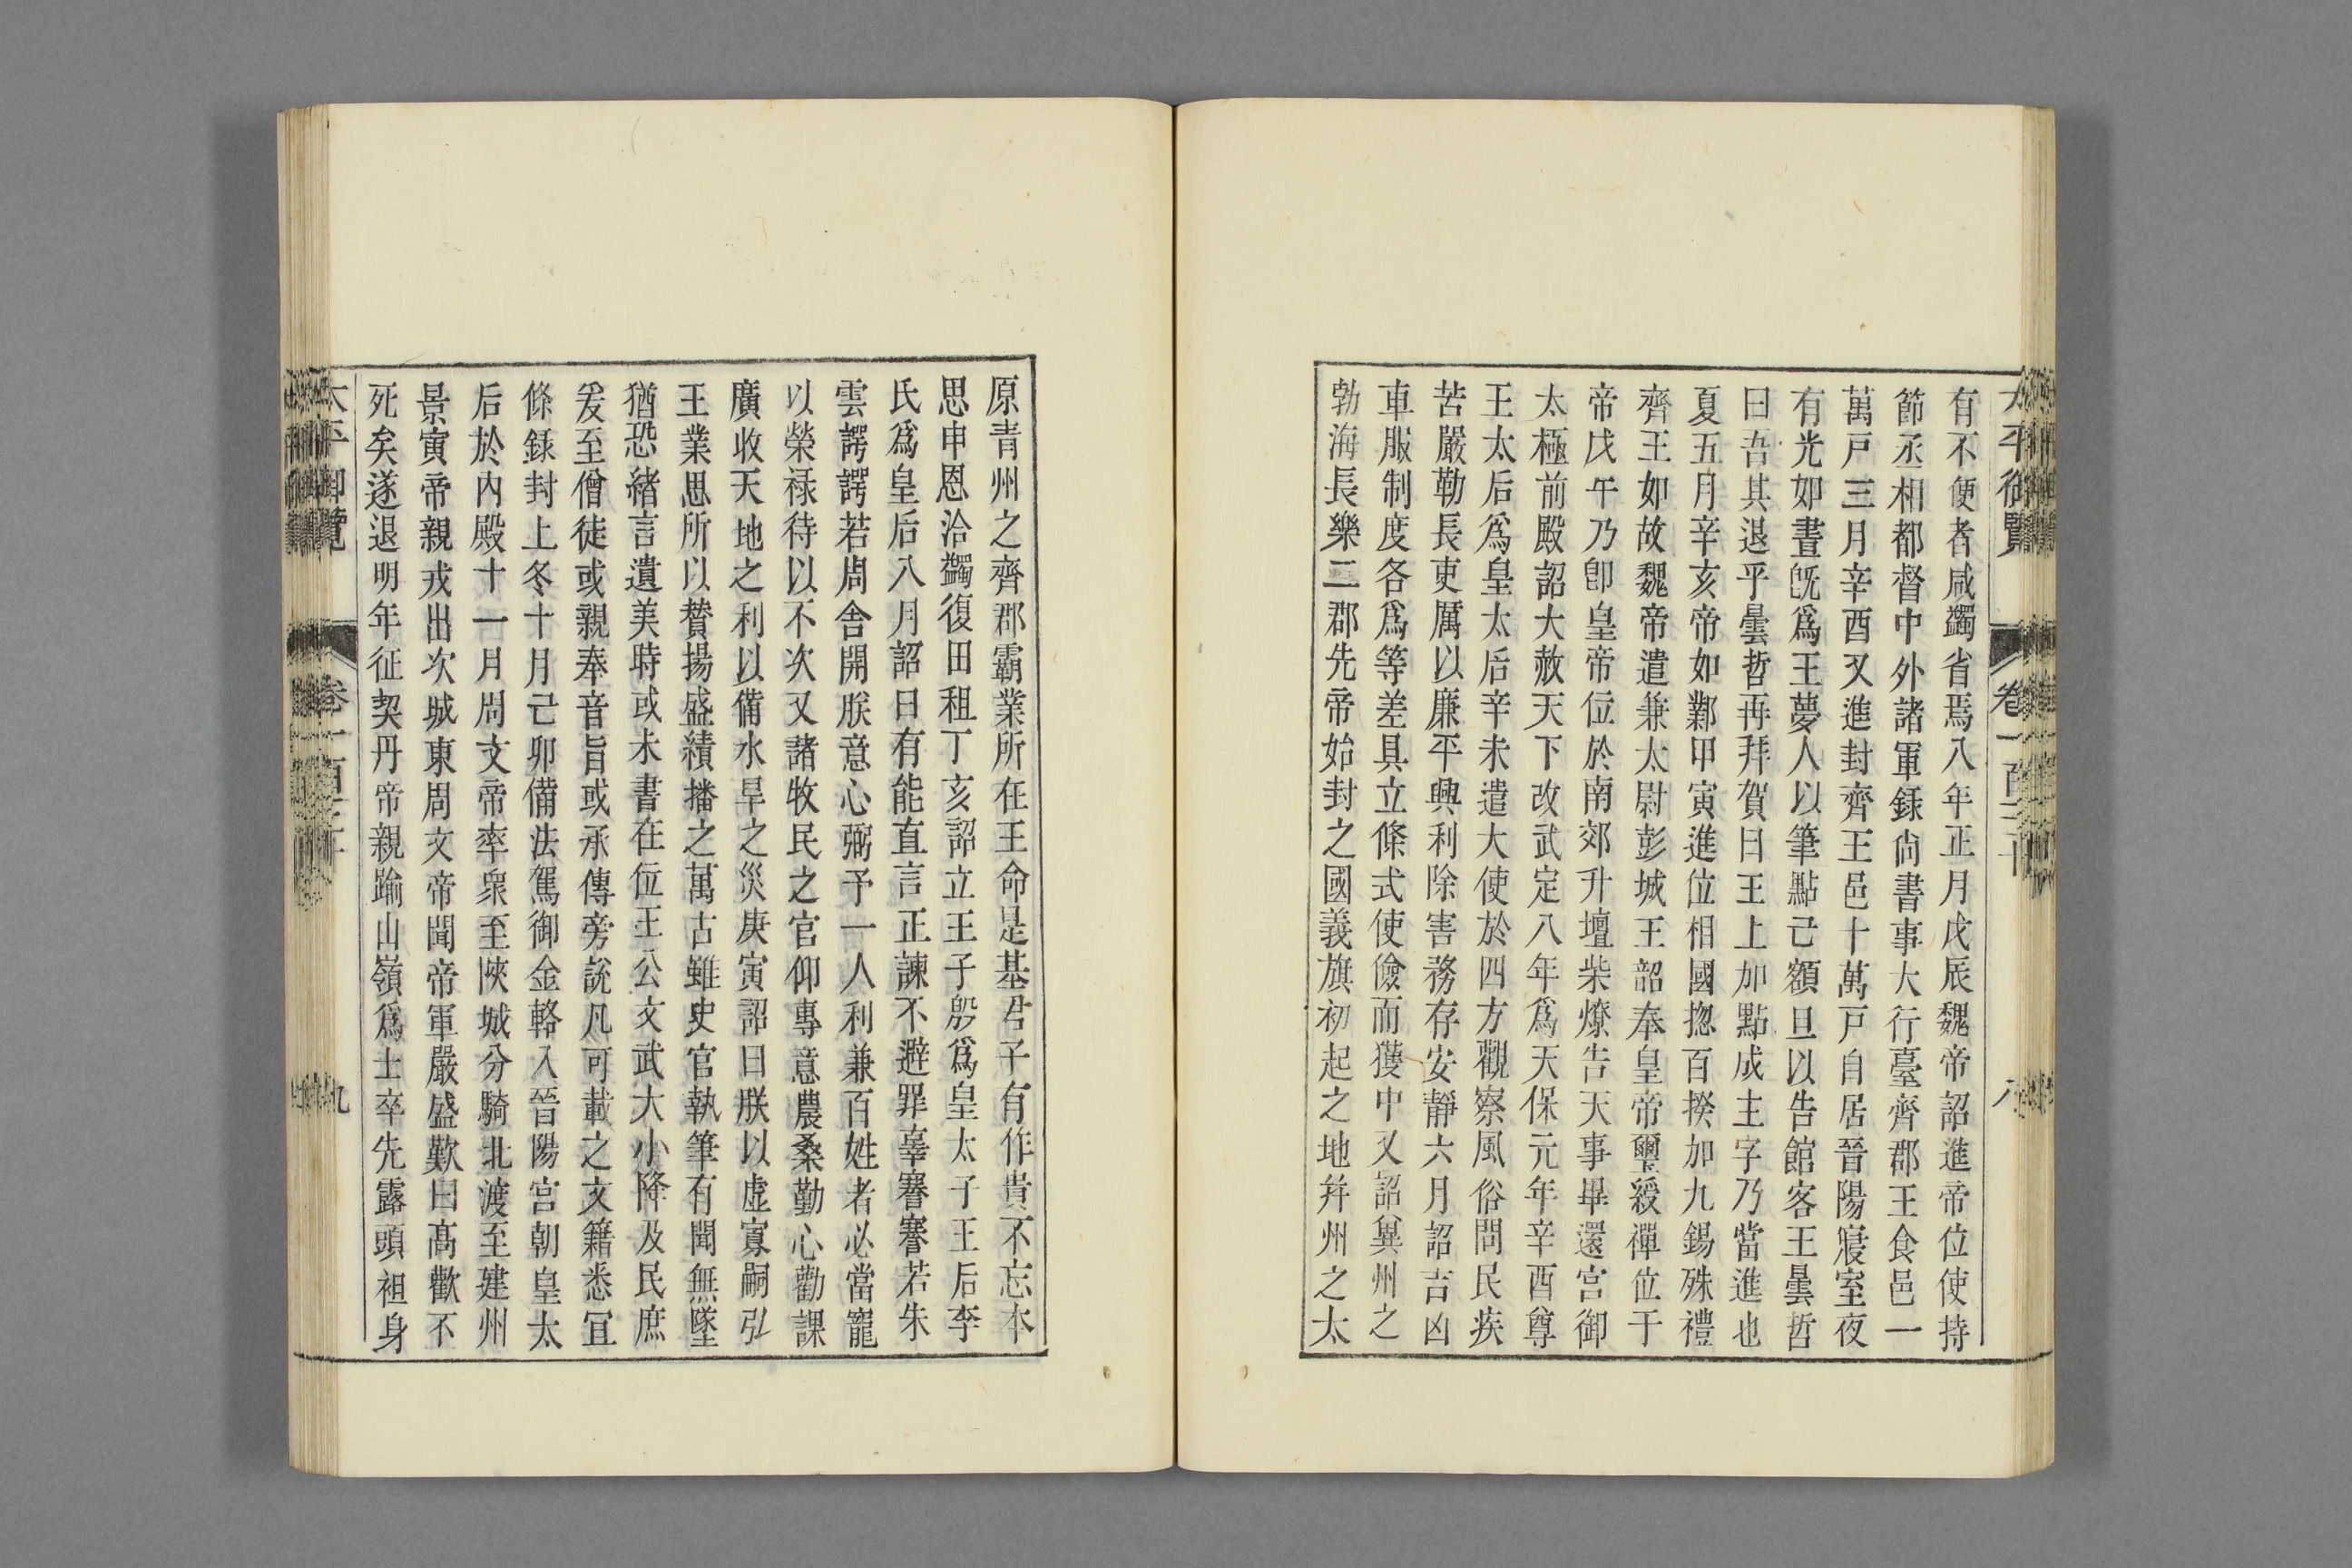 有不便者咸蠲省焉八年正月戊辰魏帝詔進帝位使持
節丞相都督中外諸軍錄尙書事大行臺齊郡王食邑一
萬戸三月辛酉又進封齊王邑十萬戸自居晉陽寢室夜
有光如晝旣爲王夢人以筆點己額旦以告館客王曇哲
曰吾其退乎曇哲再拜賀曰王上加點成主字乃當進也
夏五月辛亥帝如鄴甲寅進位相國揔百揆加九錫殊禮
齊王如故魏帝遣兼太尉彭城王韶奉皇帝璽綬禪位于
帝戊午乃卽皇帝位於南郊升壇柴燎告天事畢還宫御
太極前殿詔大赦天下改武定八年爲天保元年辛酉尊
王太后爲皇太后辛未遣大使於四方觀察風俗問民疾
苦嚴勒長吏厲以廉平興利除害務存安靜六月詔吉凶
車服制度各爲等差具立條式使儉而獲中又詔兾州之
勃海長樂二郡先帝始封之國義旗初起之地并州之太
原青州之齊郡霸業所在王命是基君子有作貴不忘本
思申恩洽蠲復田租丁亥詔立王子殷爲皇太子王后李
氏爲皇后八月詔曰有能直言正諫不避罪辜謇謇若朱
雲諤諤若周舍開朕意心弼予一人利兼百姓者必當寵
以榮祿待以不次又諸牧民之官仰專意農桑勤心勸課
廣收天地之利以備水旱之災庚寅詔曰朕以虛寡嗣弘
王業思所以贊揚盛績播之萬古雖史官執筆有聞無墜
猶恐緒言遺美時或未書在位王公文武大小降及民庶
爰至僧徒或親奉音旨或承傳旁說凡可載之文籍悉冝
條錄封上冬十月己卯備法駕御金輅入晉陽宫朝皇太
后於内殿十一月周文帝率衆至陝城分騎北渡至建州
景寅帝親戎出次城東周文帝聞帝軍嚴盛歎曰髙歡不
死矣遂退明年征契丹帝親踰山嶺爲士卒先露頭袒身